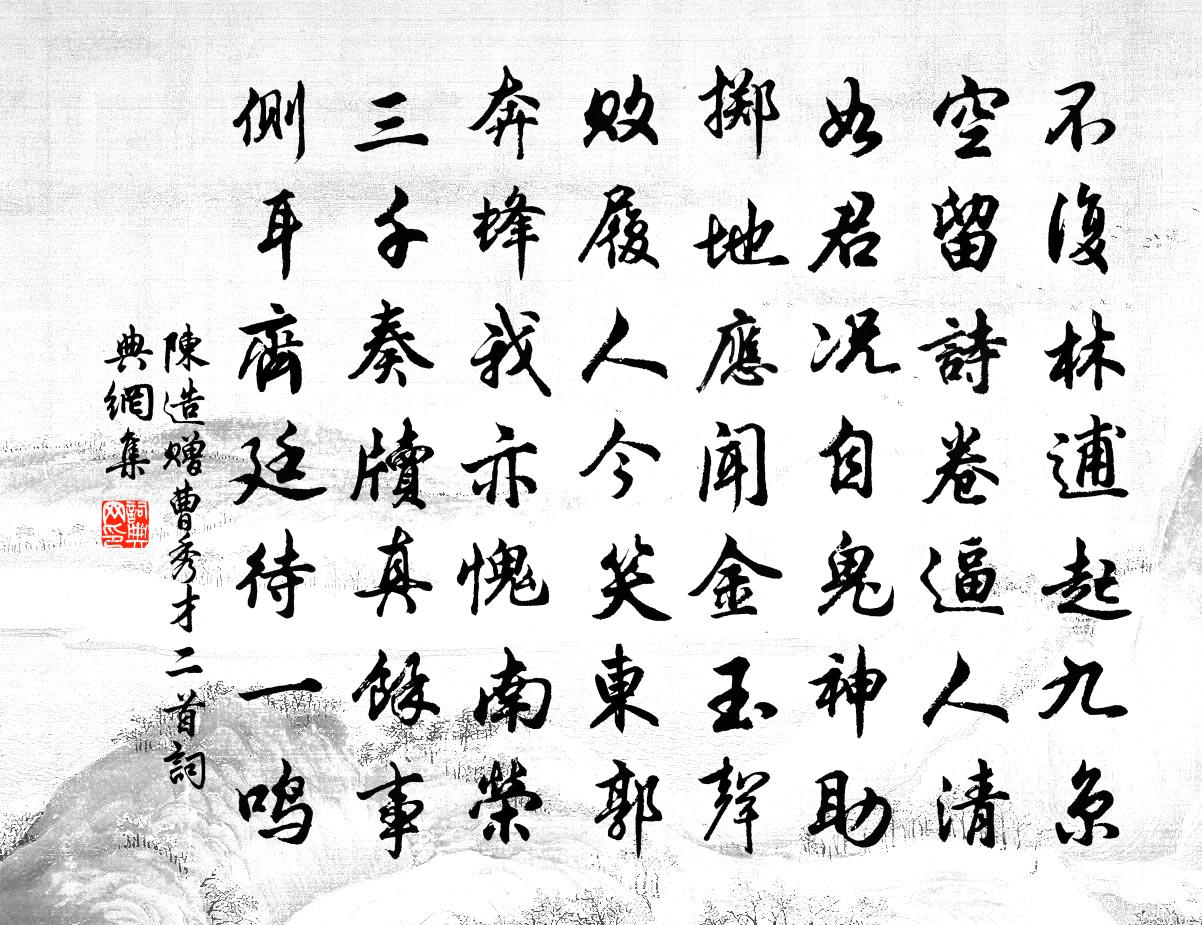 不復林逋起九京
空留詩卷逼人清
如君況自鬼神助
擲地應聞金玉聲
敗履人今笑東郭
奔蜂我亦愧南榮
三千奏牘真餘事
側耳齊廷待一鳴
陳造贈曹秀才二首詞
典網集
詞典
网印